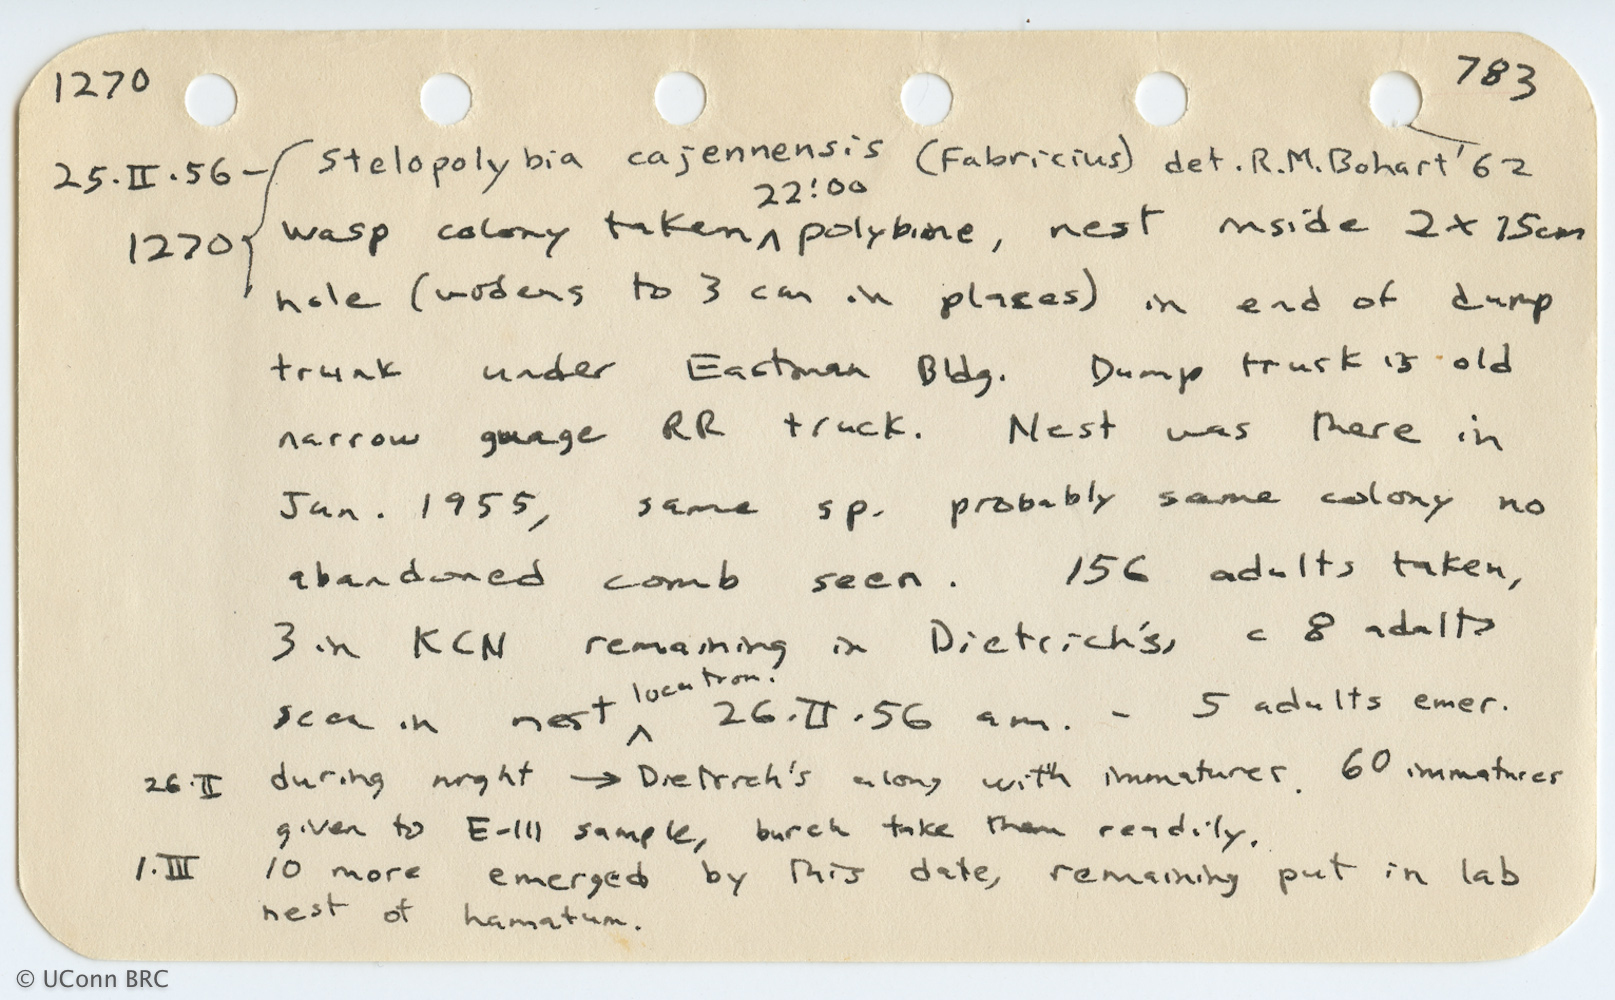 1270 783
25.II.56 - Stelopolybia cajennensis (Fabricius) det. R.M. Bohart '62
22:00
1270 wasp colony taken ^ polybiine, nest inside 2 x 15cm
hole (widens to 3 cm in places) in end of dump
trunk under Eastman Bldg. Dump truck is old
narrow guage RR truck. Nest was there in
Jan. 1955, same sp. probably same colony no
abandoned comb seen. 156 adults taken,
3 in KCN remaining in Dietrich's, c 8 adults
location.
seen in nest ^ 26.II.56 am. - 5 adults emer.
26.II during night → Dietrich's along with immatures. 60 immatures
given to E-III sample, burch take them readily.
1.III 10 more emerged by this date, remaining put in lab
nest of hamatum.
© UConn BRC